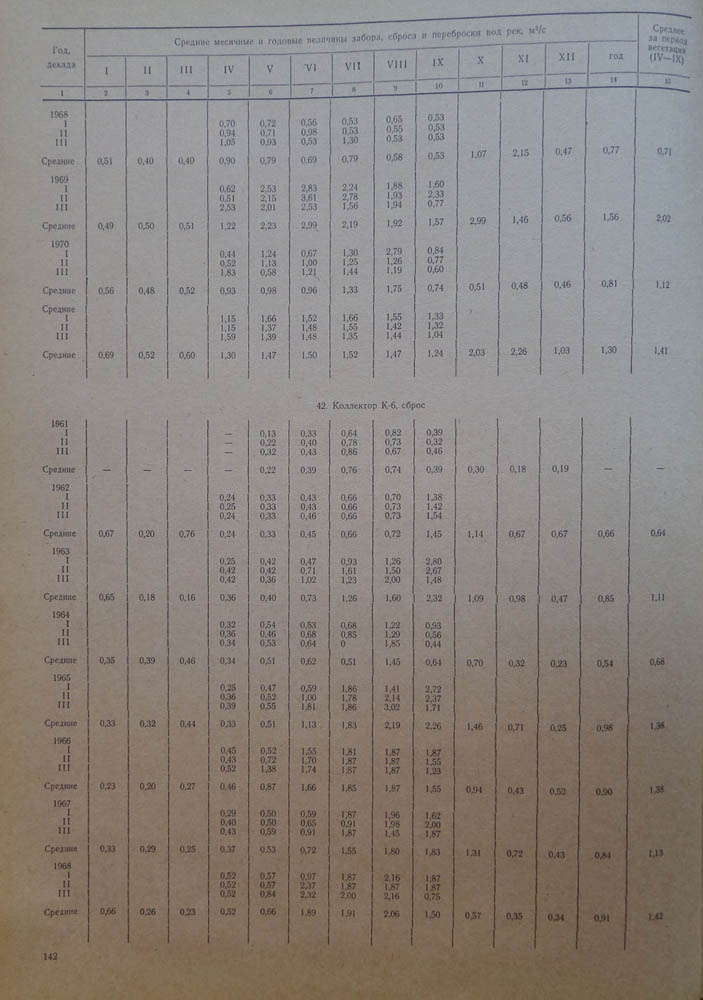 Год, декада Средние месячные и годовые величины забора, сброса и переброски вод рек, м³/с Среднее за период вегетации (IV—IX)
I II III IV V VI VII VIII IX X XI XII год
1 2 3 4 5 6 7 8 9 10 11 12 13 14 15
1968
I 0,70 0,72 0,56 0,53 0,65 0,53
II 0,94 0,71 0,98 0,53 0,55 0,53
III 1,05 0,93 0,53 1,30 0,53 0,53
Средние 0,51 0,40 0,40 0,90 0,79 0,69 0,79 0,58 0,53 1,07 2,15 0,47 0,77 0,71
1969
I 0,62 2,53 2,83 2,24 1,88 1,60
II 0,51 2,15 3,61 2,78 1,93 2,33
III 2,53 2,01 2,53 1,56 1,94 0,77
Средние 0,49 0,50 0,51 1,22 2,23 2,99 2,19 1,92 1,57 2,99 1,46 0,56 1,56 2,02
1970
I 0,44 1,24 0,67 1,30 2,79 0,84
II 0,52 1,13 1,00 1,25 1,26 0,77
III 1,83 0,58 1,21 1,44 1,19 0,60
Средние 0,56 0,48 0,52 0,93 0,98 0,96 1,33 1,75 0,74 0,51 0,48 0,46 0,81 1,12
Средние
I 1,15 1,66 1,52 1,66 1,55 1,33
II 1,15 1,37 1,48 1,55 1,42 1,32
III 1,59 1,39 1,48 1,35 1,44 1,04
Средние 0,69 0,52 0,60 1,30 1,47 1,50 1,52 1,47 1,24 2,03 2,26 1,03 1,30 1,41
42. Коллектор К-6, сброс
1961
I — 0,13 0,33 0,64 0,82 0,39
II — 0,22 0,40 0,78 0,73 0,32
III — 0,32 0,43 0,86 0,67 0,46
Средние — — — — 0,22 0,39 0,76 0,74 0,39 0,30 0,18 0,19 — —
1962
I 0,24 0,33 0,43 0,66 0,70 1,38
II 0,25 0,33 0,43 0,66 0,73 1,42
III 0,24 0,33 0,46 0,66 0,73 1,54
Средние 0,67 0,20 0,76 0,24 0,33 0,45 0,66 0,72 1,45 1,14 0,67 0,67 0,66 0,64
1963
I 0,25 0,42 0,47 0,93 1,26 2,80
II 0,42 0,42 0,71 1,61 1,50 2,67
III 0,42 0,36 1,02 1,23 2,00 1,48
Средние 0,65 0,18 0,16 0,36 0,40 0,73 1,26 1,60 2,32 1,09 0,98 0,47 0,85 1,11
1964
I 0,32 0,54 0,53 0,68 1,22 0,93
II 0,36 0,46 0,68 0,85 1,29 0,56
III 0,34 0,53 0,64 0 1,85 0,44
Средние 0,35 0,39 0,46 0,34 0,51 0,62 0,51 1,45 0,64 0,70 0,32 0,23 0,54 0,68
1965
I 0,25 0,47 0,59 1,86 1,41 2,72
II 0,36 0,52 1,00 1,78 2,14 2,37
III 0,39 0,55 1,81 1,86 3,02 1,71
Средние 0,33 0,32 0,44 0,33 0,51 1,13 1,83 2,19 2,26 1,46 0,71 0,25 0,98 1,38
1966
I 0,45 0,52 1,55 1,81 1,87 1,87
II 0,43 0,72 1,70 1,87 1,87 1,55
III 0,52 1,38 1,74 1,87 1,87 1,23
Средние 0,23 0,20 0,27 0,46 0,87 1,66 1,85 1,87 1,55 0,94 0,43 0,52 0,90 1,38
1967
I 0,29 0,50 0,59 1,87 1,96 1,62
II 0,40 0,50 0,65 0,91 1,98 2,00
III 0,43 0,59 0,91 1,87 1,45 1,87
Средние 0,33 0,29 0,25 0,37 0,53 0,72 1,55 1,80 1,83 1,31 0,72 0,43 0,84 1,13
1968
I 0,52 0,57 0,97 1,87 2,16 1,87
II 0,52 0,57 2,37 1,87 1,87 1,87
III 0,52 0,84 2,32 2,00 2,16 0,75
Средние 0,66 0,26 0,23 0,52 0,66 1,89 1,91 2,06 1,50 0,57 0,35 0,34 0,91 1,42
142